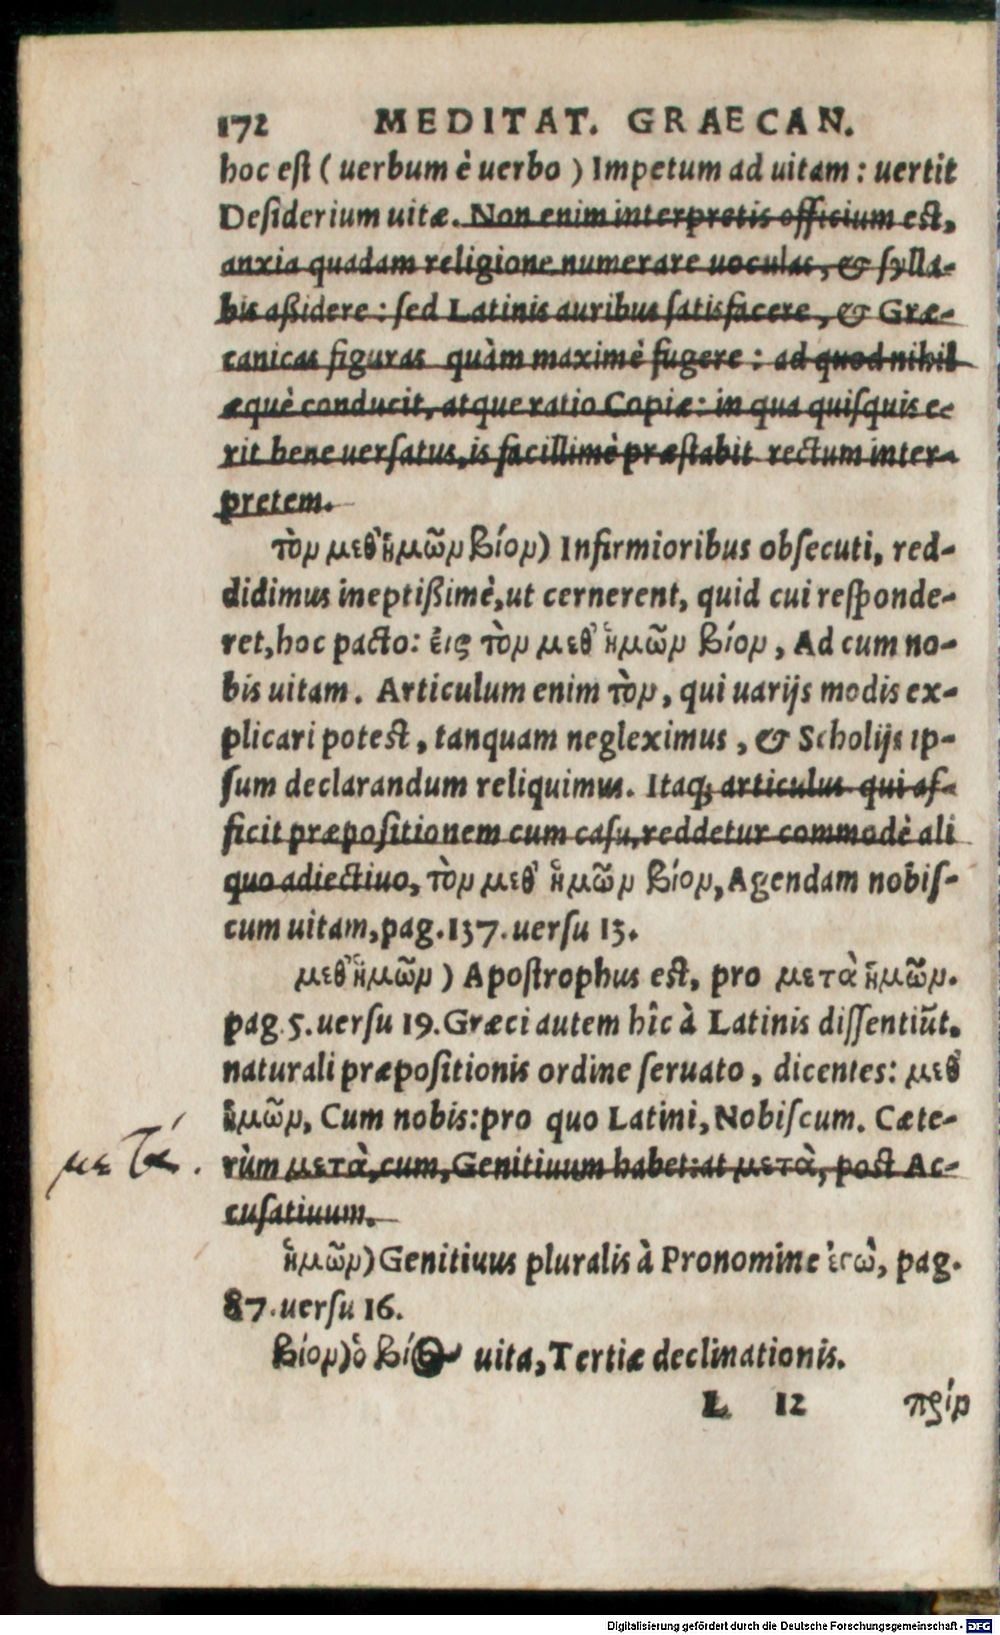 172 MEDITAT. GRAECAN.
hoc est ( uerbum è uerbo ) Impetum ad uitam : uertit
Desiderium uitæ. Non enim interpretis officium est,
anxia quadam religione numerare uoculas, & sylla-
bis aßidere : sed Latinis auribus satisfacere, & Græ-
canicas figuras quàm maximè fugere : ad quod nihil
æquè conducit, atque ratio Copiæ: in qua quisquis e-
rit bene uersatus, is facillimè præstabit rectum inter-
pretem.
τὸν μεθ᾽ ἡμῶν βίον) Infirmioribus obsecuti, red-
didimus ineptißimè, ut cernerent, quid cui responde-
ret, hoc pacto: ἐις τὸν μεθ᾽ ἡμῶν βίον, Ad cum no-
bis uitam. Articulum enim τὸν, qui uarijs modis ex-
plicari potest, tanquam negleximus, & Scholijs ip-
sum declarandum reliquimus. Itaq; articulus qui af-
ficit præpositionem cum casu, reddetur commodè ali
quo adiectiuo, τὸν μεθ᾽ ἡμῶν βίον, Agendam nobis-
cum uitam, pag. 137. uersu 13.
μεθ᾽ ἡμῶν ) Apostrophus est, pro μετὰ ἡμῶν.
pag. 5. uersu 19. Græci autem hîc à Latinis dissentiũt.
naturali præpositionis ordine seruato, dicentes: μεθ᾽
ἡμῶν, Cum nobis: pro quo Latini, Nobiscum. Cæte-
μετά. rùm μετὰ, cum, Genitiuum habet: at μετὰ, post Ac-
cusatiuum.
ἡμῶν) Genitiuus pluralis à Pronomine ἐγὼ, pag.
87. uersu 16.
βίον) ὁ βίος uita, Tertiæ declinationis.
L 12 πρίν
Digitalisierung gefördert durch die Deutsche Forschungsgemeinschaft - DFG